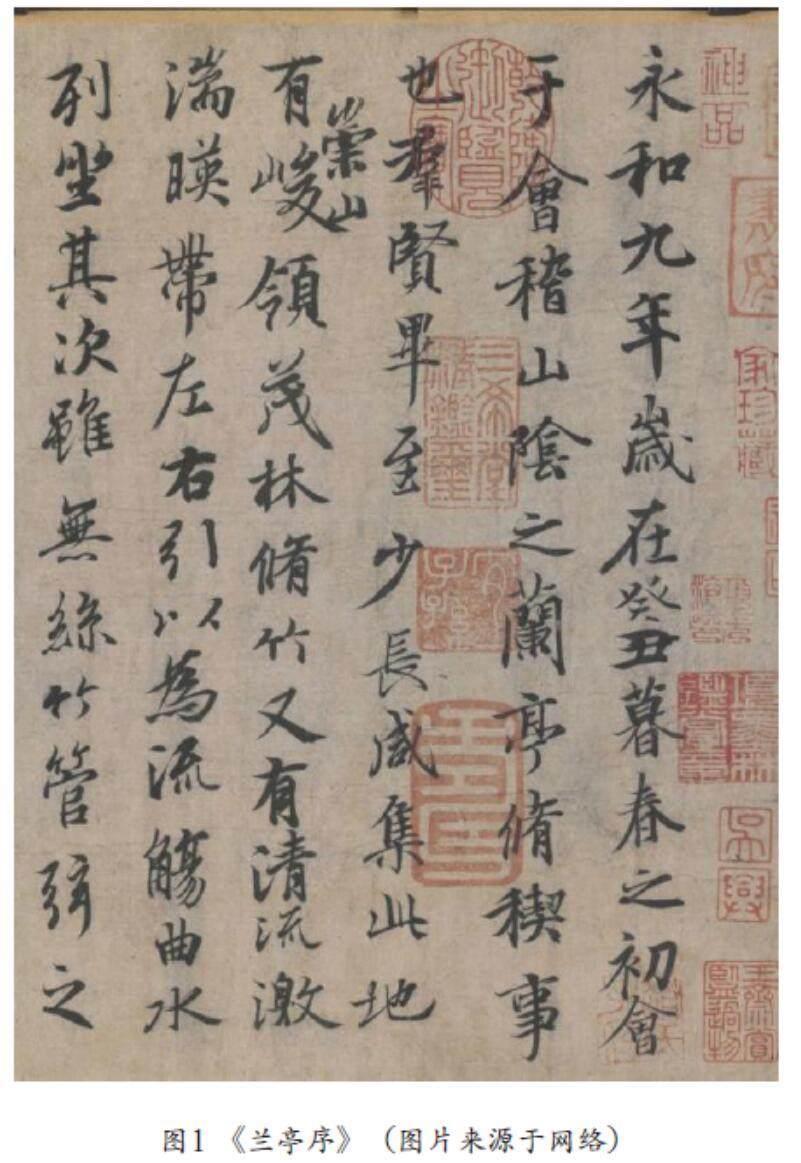 永和九年歲在癸丑暮春之初會
于會稽山陰之蘭亭脩稧事
也羣賢畢至少長咸集此地
有崇山峻領茂林脩竹又有清流激
湍暎帶左右引以為流觴曲水
列坐其次雖無絲竹管弦之
神品
家珍藏
三希堂精鑑璽
宜子孫
吳興
图1 《兰亭序》（图片来源于网络）